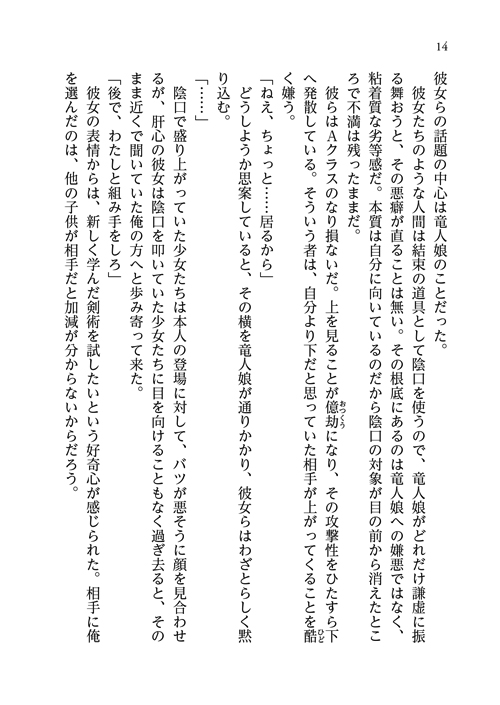 14
彼女らの話題の中心は竜人娘のことだった。
彼女たちのような人間は結束の道具として陰口を使うので、竜人娘がどれだけ謙虚に振
る舞おうと、その悪癖が直ることは無い。その根底にあるのは竜人娘への嫌悪ではなく、
粘着質な劣等感だ。本質は自分に向いているのだから陰口の対象が目の前から消えたとこ
ろで不満は残ったままだ。
彼らはAクラスのなり損ないだ。上を見ることが億劫おっくうになり、その攻撃性をひたすら下
へ発散している。そういう者は、自分より下だと思っていた相手が上がってくることを酷ひど
く嫌う。
「ねえ、ちょっと……居るから」
どうしようか思案していると、その横を竜人娘が通りかかり、彼女らはわざとらしく黙
り込む。
「……」
陰口で盛り上がっていた少女たちは本人の登場に対して、バツが悪そうに顔を見合わせ
るが、肝心の彼女は陰口を叩いていた少女たちに目を向けることもなく過ぎ去ると、その
まま近くで聞いていた俺の方へと歩み寄って来た。
「後で、わたしと組み手をしろ」
彼女の表情からは、新しく学んだ剣術を試したいという好奇心が感じられた。相手に俺
を選んだのは、他の子供が相手だと加減が分からないからだろう。